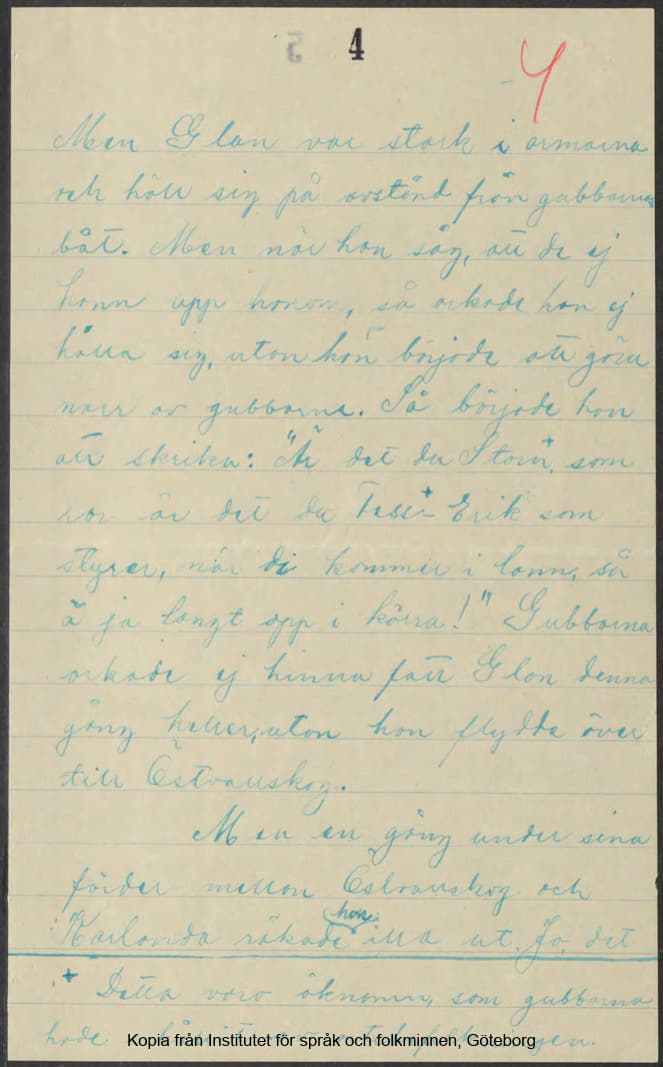 5 4
4
Men Glan var stark i armarna
och höll sig på avstånd från gubbarnas
båt. Men när han såg, att de ej
hann upp honom, så orkade han ej
hålla sig, utan han började att göra
narr av gubbarna. Så började han
att skrika: "Är det du Storn+, som
ror är det du Tasse+-Erik som
styrer, när di kommer i lann, så
ä ja langt opp i kärra!" Gubbarna
orkade ej hinna fatt Glan denna
gång heller, utan han flydde över
till Östvallskog.
Men en gång under sina
färder mellan Östvallskog och
Karlanda råkade han illa ut. Jo, det
+ Detta voro öknamn, som gubbarna
hade
Kopia från Institutet för språk och folkminnen, Göteborg